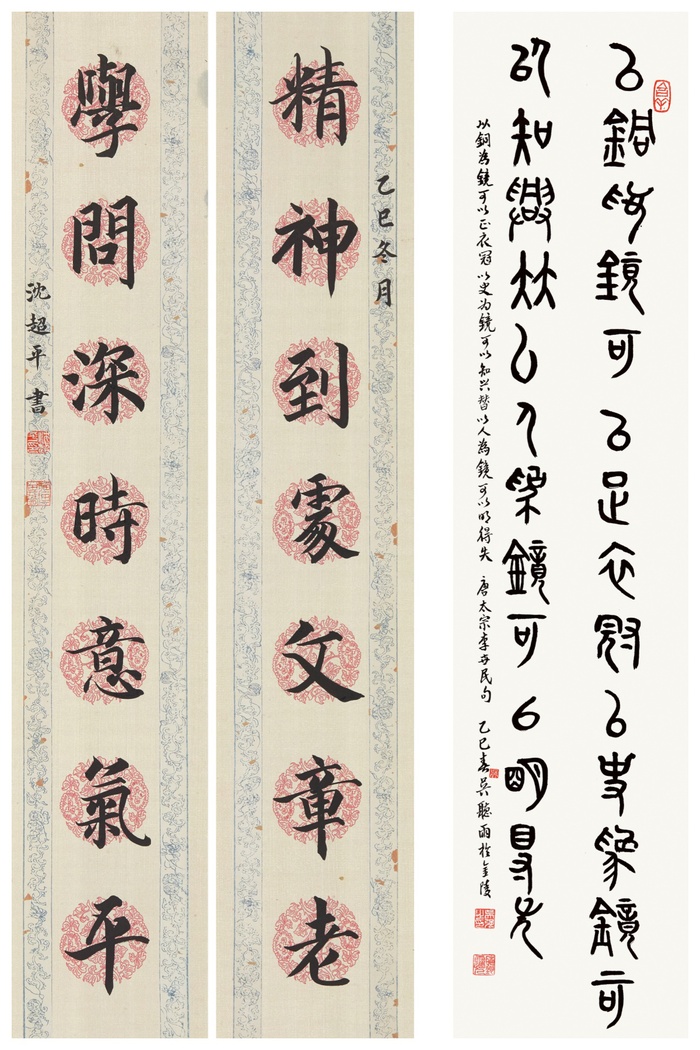 以銅為鏡可以正衣冠以史為鏡可
以知興替以人為鏡可以明得失
以銅為鏡可以正衣冠以史为鏡可以知兴替以人為鏡可以明得失 唐太宗李世民句 乙巳春吴聽雨於金陵
乙巳冬月
精神到處文章老
學問深時意氣平
沈超平書